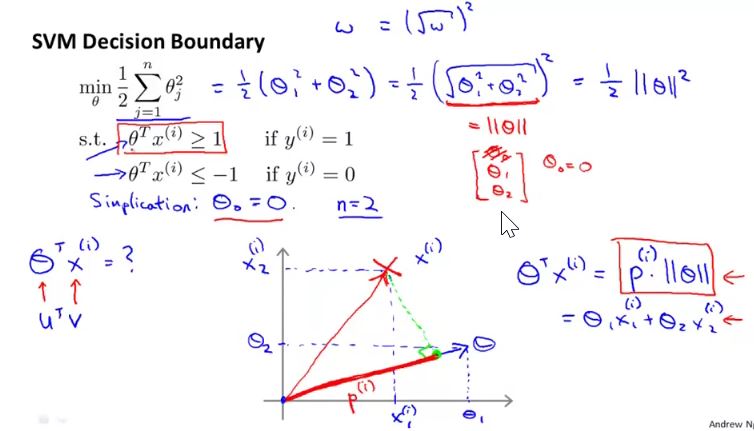 ω = (√ω²)²
SVM Decision Boundary
min_θ 1/2 ∑_{j=1}^{n} θ_j² = 1/2 (θ₁² + θ₂²) = 1/2 (√(θ₁² + θ₂²))² = 1/2 ||θ||²
= ||θ||
s.t. θᵀx⁽ⁱ⁾ ≥ 1 if y⁽ⁱ⁾ = 1
θᵀx⁽ⁱ⁾ ≤ −1 if y⁽ⁱ⁾ = 0
[θ₁ θ₂] θ₀ = 0
Simplication: θ₀ = 0. n=2
θᵀx⁽ⁱ⁾ = ?
uᵀv
x₂⁽ⁱ⁾
x⁽ⁱ⁾
θ₂
θ
p⁽ⁱ⁾
x₁⁽ⁱ⁾
θ₁
θᵀx⁽ⁱ⁾ = p⁽ⁱ⁾ · ||θ|| ←
= θ₁x₁⁽ⁱ⁾ + θ₂x₂⁽ⁱ⁾ ←
Andrew N